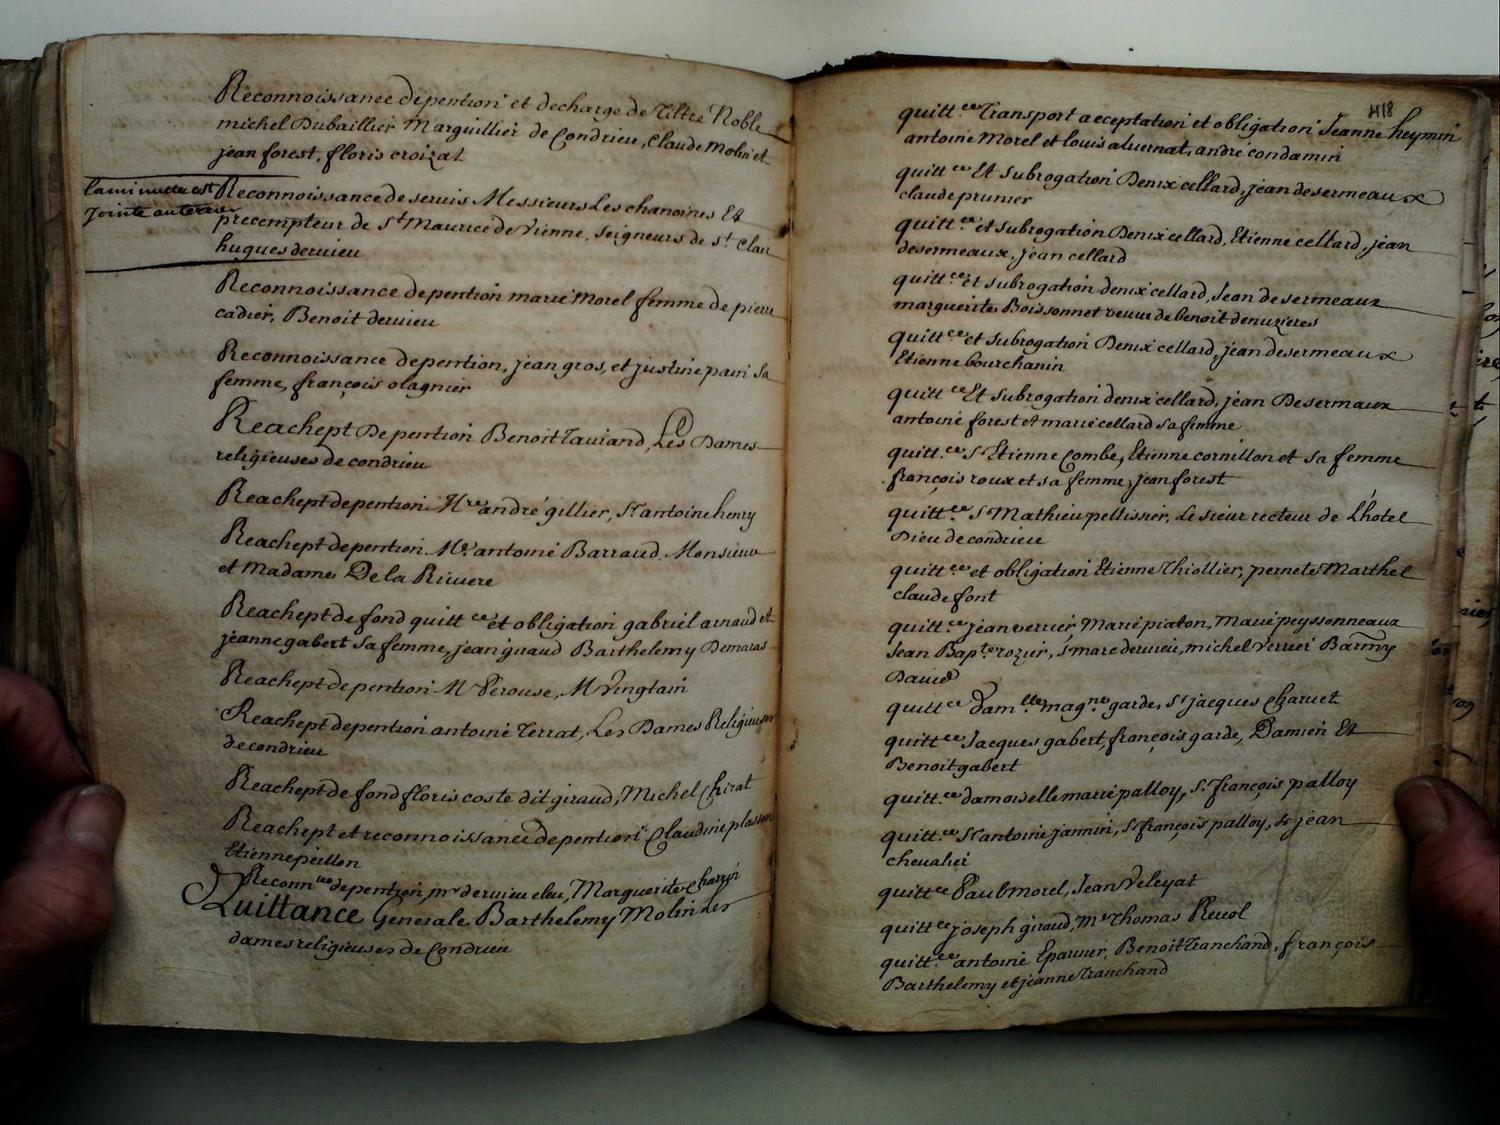 Reconnoissance de pention et decharge de Tiltre Noble
michel Dubaillier Marguillier de Condrieu, Claude Molin et
jean forest, floris croizat
la minutte est
jointe au terrier
Reconnoissance de servis Messieurs Les chanoines Et
precempteur de st Maurice de Vienne, seigneurs de st Clair
hugues dervieu
Reconnoissance de pention marie Morel femme de pierre
cadier, Benoit dervieu
Reconnoissance de pention, jean gros, et justine pain sa
femme, françois olagnier
Reachept De pention Benoit Taviand, Les Dames
religieuses de condrieu
Reachept de pention Mre andré gillier, Sr antoine henry
Reachept de pention Me antoine Barraud Monsieur
et Madame De la Riviere
Reachept de fond quittce et obligation gabriel arnaud et
jeanne gabert sa femme, jean giraud Barthelemy Demaras
Reachept de pention M Perouse, M Vinglain
Reachept de pention antoine Terrat, Les Dames Religieuses
de condrieu
Reachept de fond floris coste dit giraud, Michel Chirat
Reachept et reconnoissance de pention Claudine plasson
Etienne peillon
Reconnce de pention, mr dervieu eleu, Marguerite Charrin
Quittance Generale Barthelemy Molin Les
dames religieuses de Condrieu
418
quittce Transport acceptation et obligation Jeanne heymin
antoine Morel et louis alvernat, andré condamin
quittce Et subrogation Denix cellard, jean desermeaux
claude prunier
quittce et subrogation Denix cellard, Etienne cellard, jean
desermeaux, jean cellard
quittce et subrogation denix cellard, Jean desermeaux
marguerite Boissonnet veuve de benoit denuzieres
quittce et subrogation Denix cellard, jean desermeaux
Etienne bourchanin
quittce Et subrogation denix cellard, jean Desermaux
antoine forest et marie cellard sa femme
quittce Sr Etienne Combe, Etienne cornillon et sa femme
françois roux et sa femme, jean forest
quittce Sr Mathieu pellissier, Le sieur recteur de L'hotel
Dieu de condrieu
quittce et obligation Etienne Thiollier, pernete Marthel
claude font
quittce jean verrier, Marie piaton, Marie peyssonneaux
Jean Bapte rozier, Sr marc dervieu, michel Verrier Barmy
David
quittce damlle magne garde, Sr jacques Charvet
quittce Jacques gabert, françois garde, Damien Et
Benoit gabert
quittce damoiselle marie palloy, Sr françois palloy
quittce Sr antoine jannin, Sr françois palloy, Sr jean
chevalier
quittce Paul morel, Jean Veleyat
quittce joseph giraud, Me Thomas Revol
quittce antoine Eparvier, Benoit Tranchand, françois
Barthelemy et jeanne Tranchand